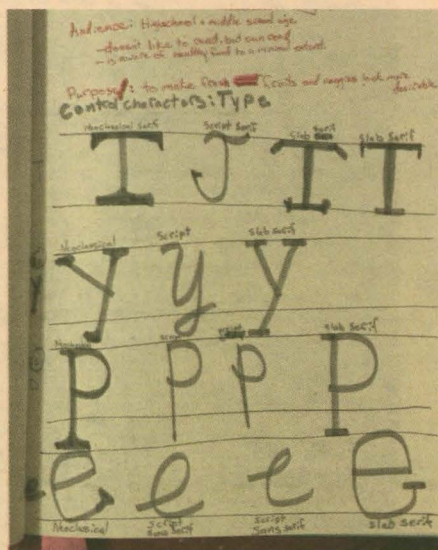 Audience: Highschool + middle school age
- doesn't like to read, but can read
- is aware of healthy food to a minimal extent
Purpose: to make fruits and veggies look more desirable
Control characters: Type
Neoclassical serif Script serif Slab serif Slab serif
T T T T
Neoclassical Script Slab serif
y y y
Neoclassical Script slab serif
P P P P
e e e e
Neoclassical script sans serif script sans serif slab serif